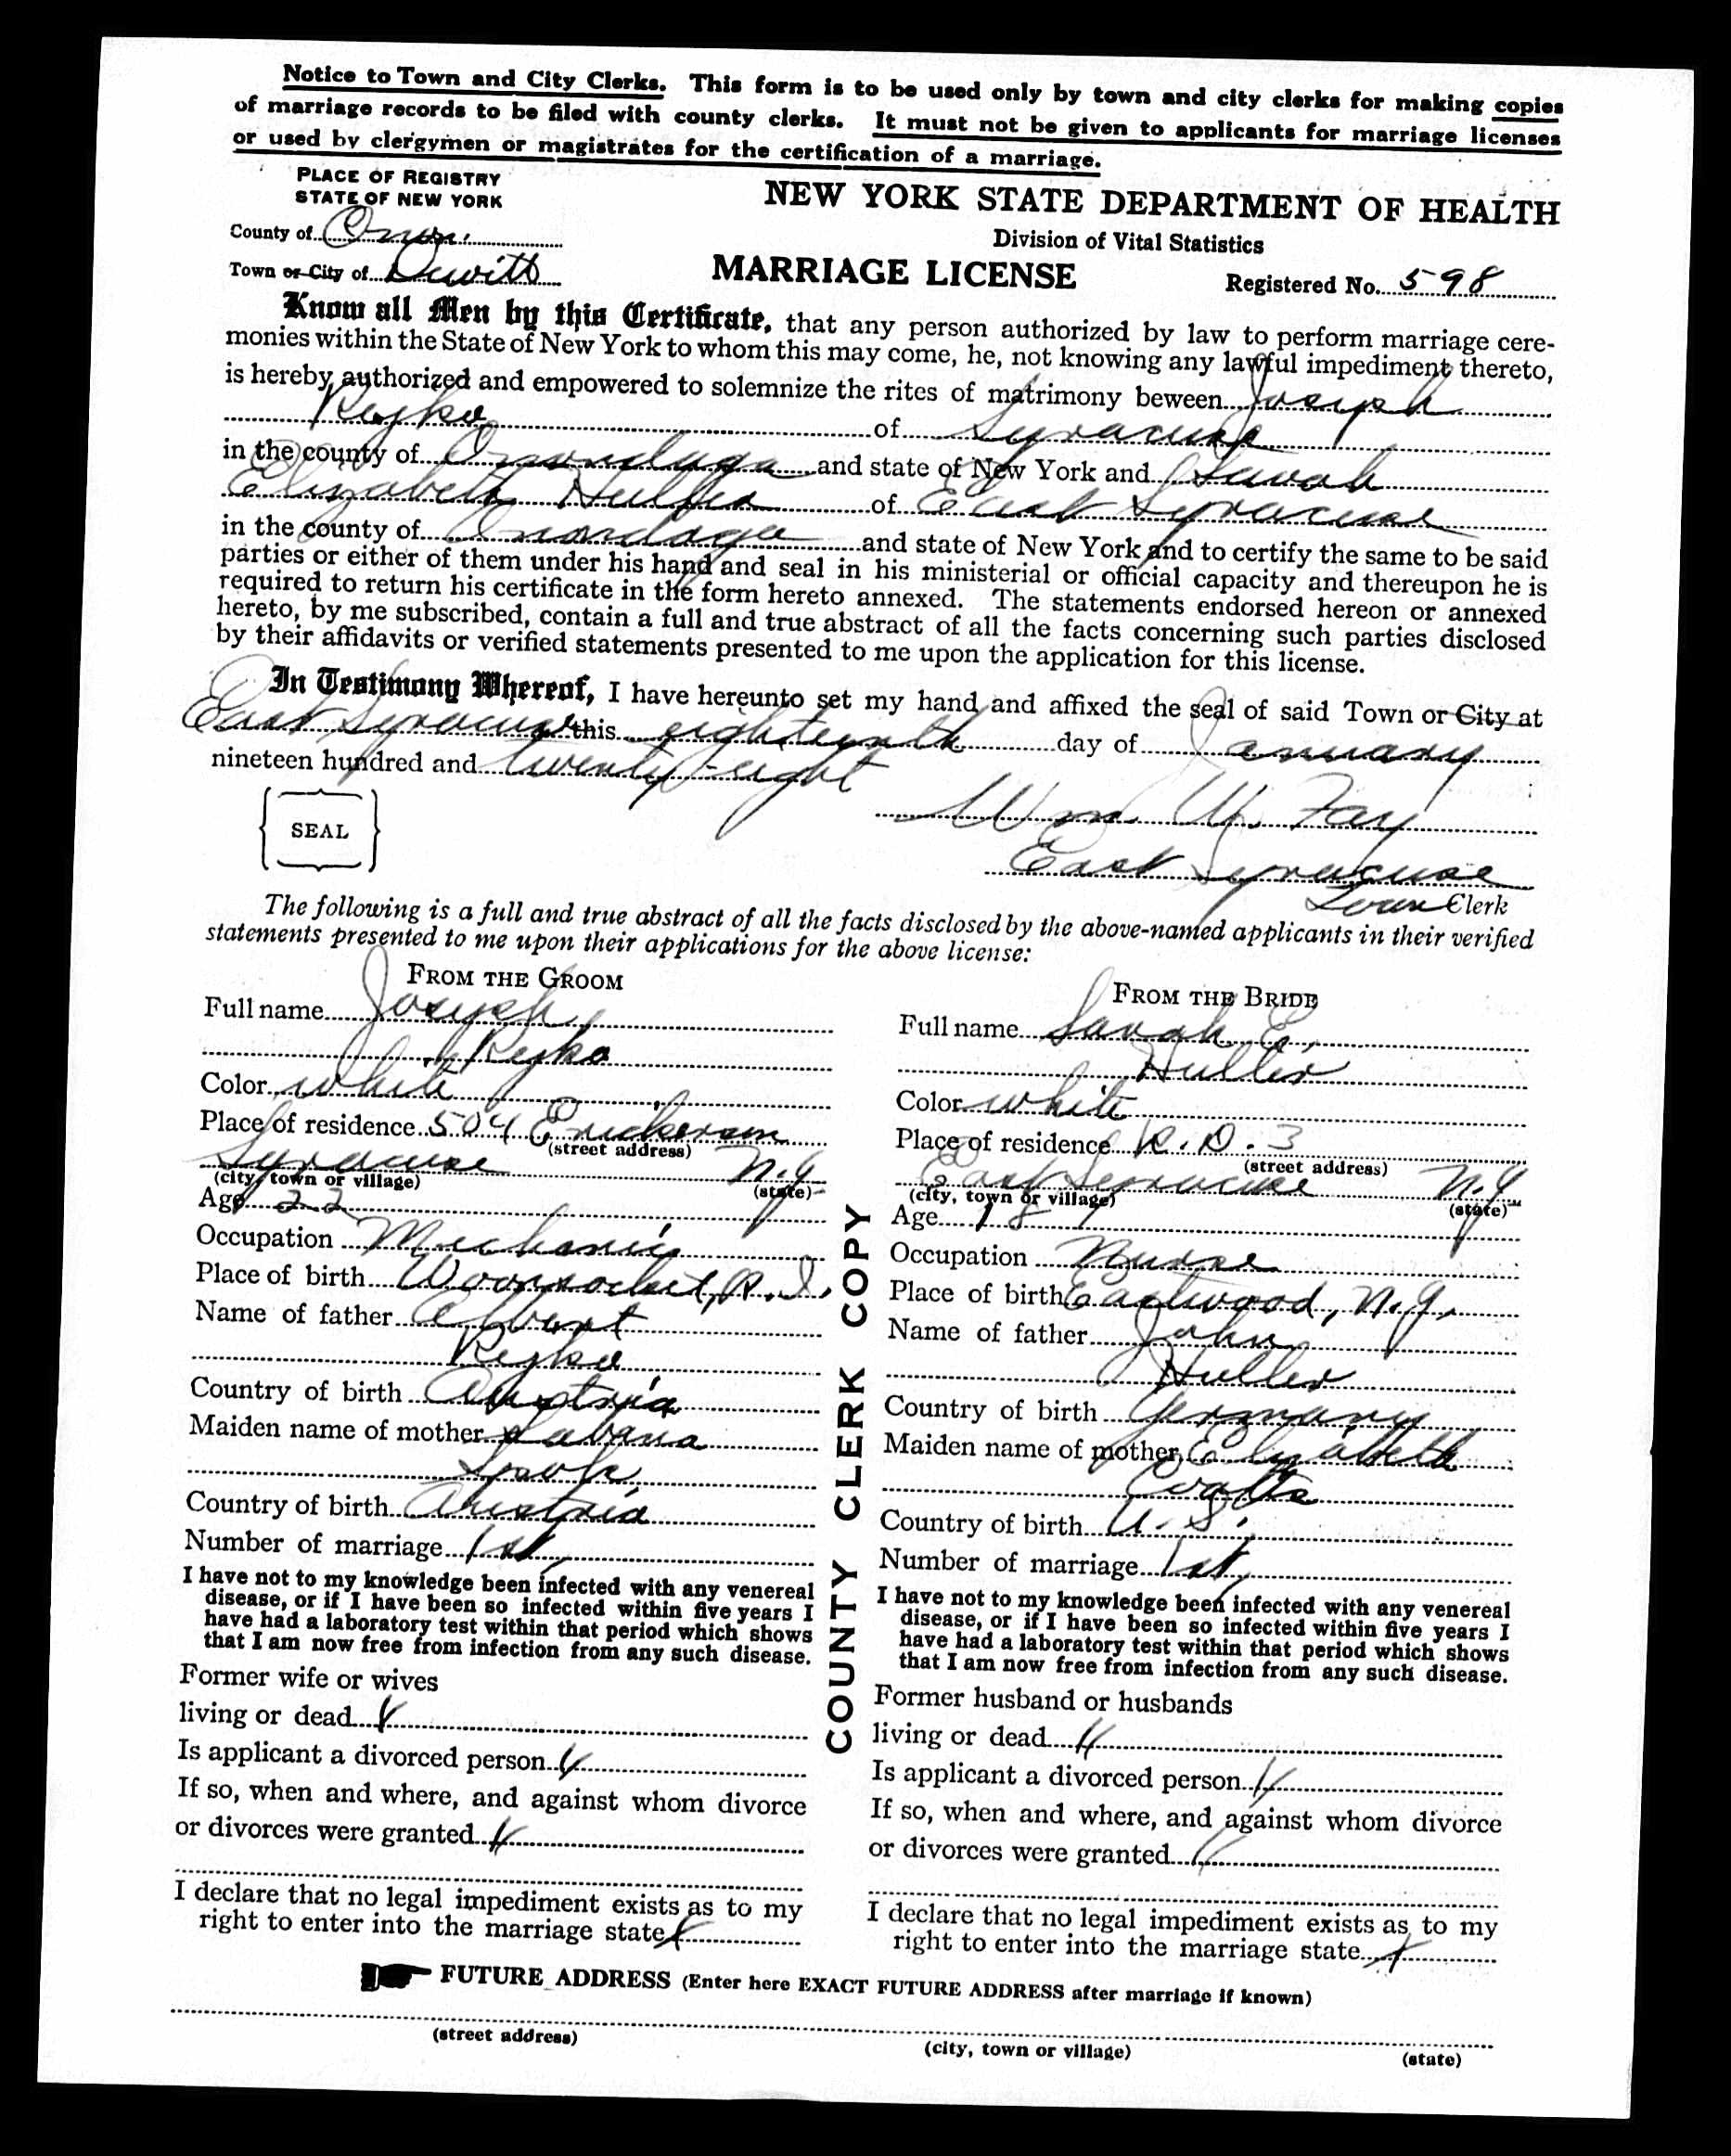 Notice to Town and City Clerks. This form is to be used only by town and city clerks for making copies
of marriage records to be filed with county clerks. It must not be given to applicants for marriage licenses
or used by clergymen or magistrates for the certification of a marriage.
PLACE OF REGISTRY
STATE OF NEW YORK
NEW YORK STATE DEPARTMENT OF HEALTH
Division of Vital Statistics
County of Onon.
Town or City of Dewitt
MARRIAGE LICENSE
Registered No. 598
Know all Men by this Certificate, that any person authorized by law to perform marriage cere-
monies within the State of New York to whom this may come, he, not knowing any lawful impediment thereto,
is hereby authorized and empowered to solemnize the rites of matrimony beween Joseph
Rejko of Syracuse
in the county of Onondaga and state of New York and Sarah
Elizabeth of East Syracuse
in the county of Onondaga and state of New York and to certify the same to be said
parties or either of them under his hand and seal in his ministerial or official capacity and thereupon he is
required to return his certificate in the form hereto annexed. The statements endorsed hereon or annexed
hereto, by me subscribed, contain a full and true abstract of all the facts concerning such parties disclosed
by their affidavits or verified statements presented to me upon the application for this license.
In Testimony Whereof, I have hereunto set my hand and affixed the seal of said Town or City at
East Syracuse this eighteenth day of January
nineteen hundred and twenty-eight
SEAL
Wm. W. Fay
East Syracuse
Town Clerk
The following is a full and true abstract of all the facts disclosed by the above-named applicants in their verified
statements presented to me upon their applications for the above license:
FROM THE GROOM
Full name Joseph
Rejko
Color white
Place of residence 504 Erickson
(street address)
Syracuse N.Y
(city, town or village) (state)
Age 22
Occupation Mechanic
Place of birth Woonsocket, R.I.
Name of father Albert
Rejko
Country of birth Austria
Maiden name of mother
Country of birth Austria
Number of marriage 1st
I have not to my knowledge been infected with any venereal
disease, or if I have been so infected within five years I
have had a laboratory test within that period which shows
that I am now free from infection from any such disease.
Former wife or wives
living or dead
Is applicant a divorced person
If so, when and where, and against whom divorce
or divorces were granted
I declare that no legal impediment exists as to my
right to enter into the marriage state
COUNTY CLERK COPY
FROM THE BRIDE
Full name Sarah E.
Huller
Color white
Place of residence R.D. 3
(street address)
East Syracuse N.Y
(city, town or village) (state)
Age 18
Occupation Nurse
Place of birth Eastwood, N.Y.
Name of father John
Huller
Country of birth Germany
Maiden name of mother Elizabeth
Country of birth U.S.
Number of marriage 1st
I have not to my knowledge been infected with any venereal
disease, or if I have been so infected within five years I
have had a laboratory test within that period which shows
that I am now free from infection from any such disease.
Former husband or husbands
living or dead
Is applicant a divorced person
If so, when and where, and against whom divorce
or divorces were granted
I declare that no legal impediment exists as to my
right to enter into the marriage state
FUTURE ADDRESS (Enter here EXACT FUTURE ADDRESS after marriage if known)
(street address) (city, town or village) (state)